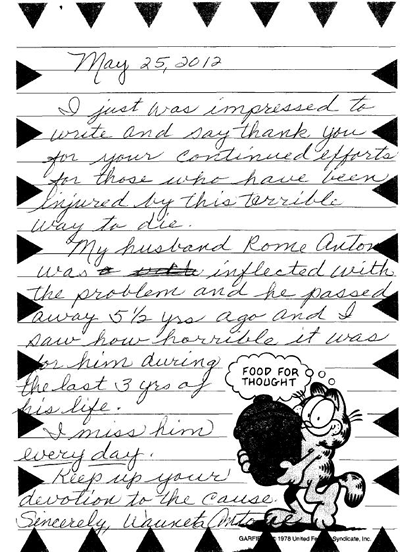 May 25, 2012
I just was impressed to
write and say thank you
for your continued efforts
for those who have been
injured by this terrible
way to die.
My husband Rome Anton
was inflected with
the problem and he passed
away 5½ yrs ago and I
saw how horrible it was
for him during
the last 3 yrs of
his life.
I miss him
every day.
Keep up your
devotion to the cause.
Sincerely,
FOOD FOR
THOUGHT
GARFIELD: © 1978 United Feature Syndicate, Inc.